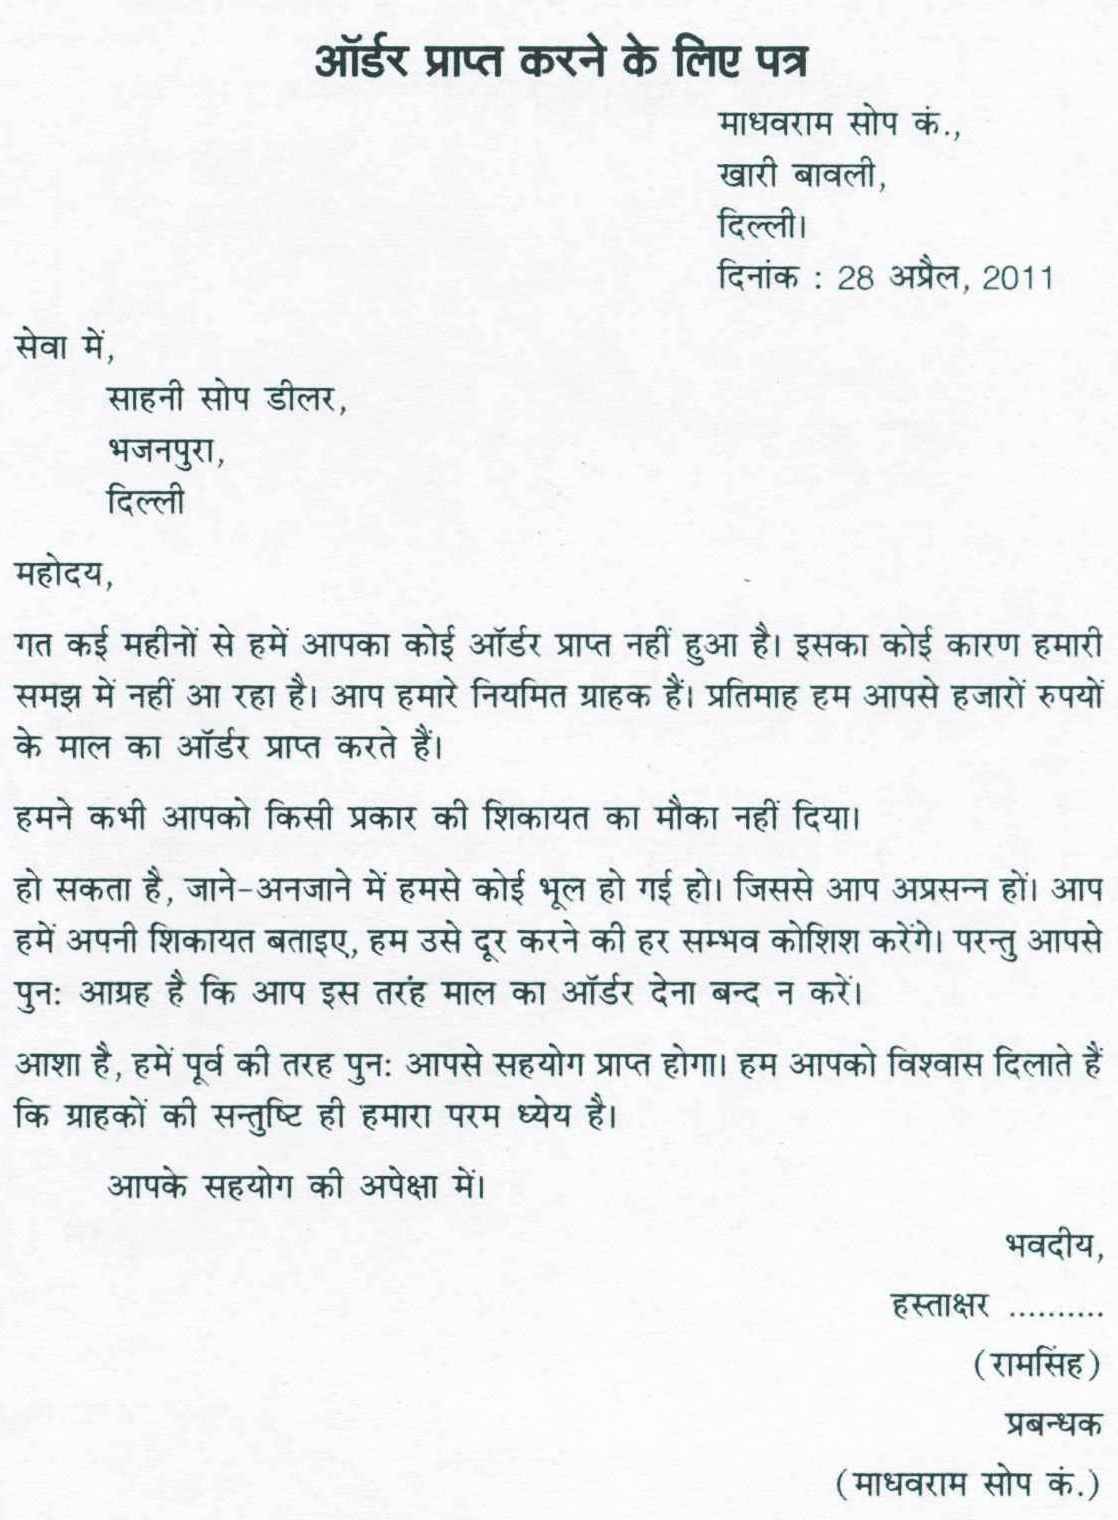 ऑर्डर प्राप्त करने के लिए पत्र
माधवराम सोप कं.,
खारी बावली,
दिल्ली।
दिनांक : 28 अप्रैल, 2011
सेवा में,
साहनी सोप डीलर,
भजनपुरा,
दिल्ली
महोदय,
गत कई महीनों से हमें आपका कोई ऑर्डर प्राप्त नहीं हुआ है। इसका कोई कारण हमारी
समझ में नहीं आ रहा है। आप हमारे नियमित ग्राहक हैं। प्रतिमाह हम आपसे हजारों रुपयों
के माल का ऑर्डर प्राप्त करते हैं।
हमने कभी आपको किसी प्रकार की शिकायत का मौका नहीं दिया।
हो सकता है, जाने-अनजाने में हमसे कोई भूल हो गई हो। जिससे आप अप्रसन्न हों। आप
हमें अपनी शिकायत बताइए, हम उसे दूर करने की हर सम्भव कोशिश करेंगे। परन्तु आपसे
पुन: आग्रह है कि आप इस तरंह माल का ऑर्डर देना बन्द न करें।
आशा है, हमें पूर्व की तरह पुन: आपसे सहयोग प्राप्त होगा। हम आपको विश्वास दिलाते हैं
कि ग्राहकों की सन्तुष्टि ही हमारा परम ध्येय है।
आपके सहयोग की अपेक्षा में।
भवदीय,
हस्ताक्षर ..........
(रामसिंह)
प्रबन्धक
(माधवराम सोप कं.)